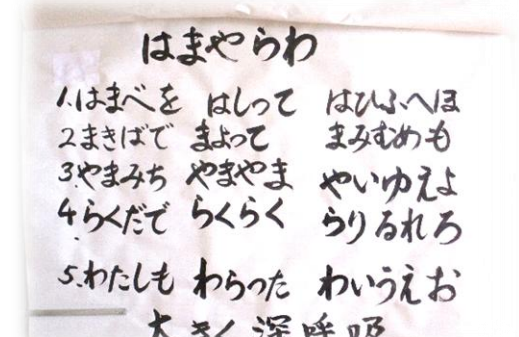 はまやらわ
1.はまべを はしって はひふへほ
2まきばで まよって まみむめも
3.やまみち やまやま やいゆえよ
4.らくだで らくらく らりるれろ
5.わたしも わらった わいうえお
大きく深呼吸